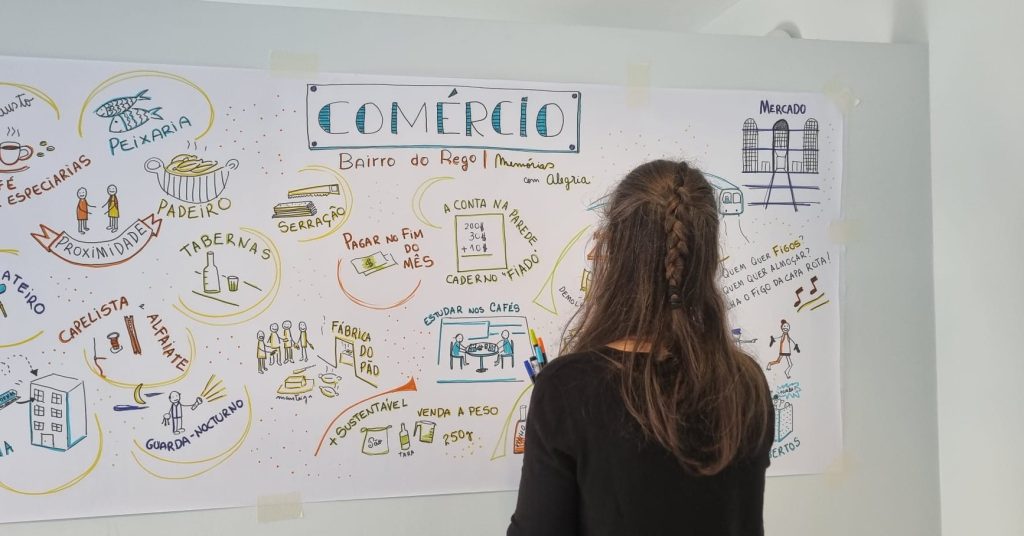 COMÉRCIO
Bairro do Rego | Memórias
com Alegria
PEIXARIA
ESPECIARIAS
PROXIMIDADE
PADEIRO
SERRAÇÃO
TABERNAS
PAGAR NO FIM
DO
MÊS
A CONTA NA PAREDE
200$
30$
+10$
CADERNO "FIADO"
MERCADO
QUEM QUER FIGOS?
QUEM QUER ALMOÇAR?
O FIGO DA CAPA ROTA!
CAPELISTA E
ALFAIATE
FÁBRICA
DO
PÃO
manteiga
ESTUDAR NOS CAFÉS
GUARDA-NOCTURNO
+ SUSTENTÁVEL
VENDA A PESO
250g
TARA